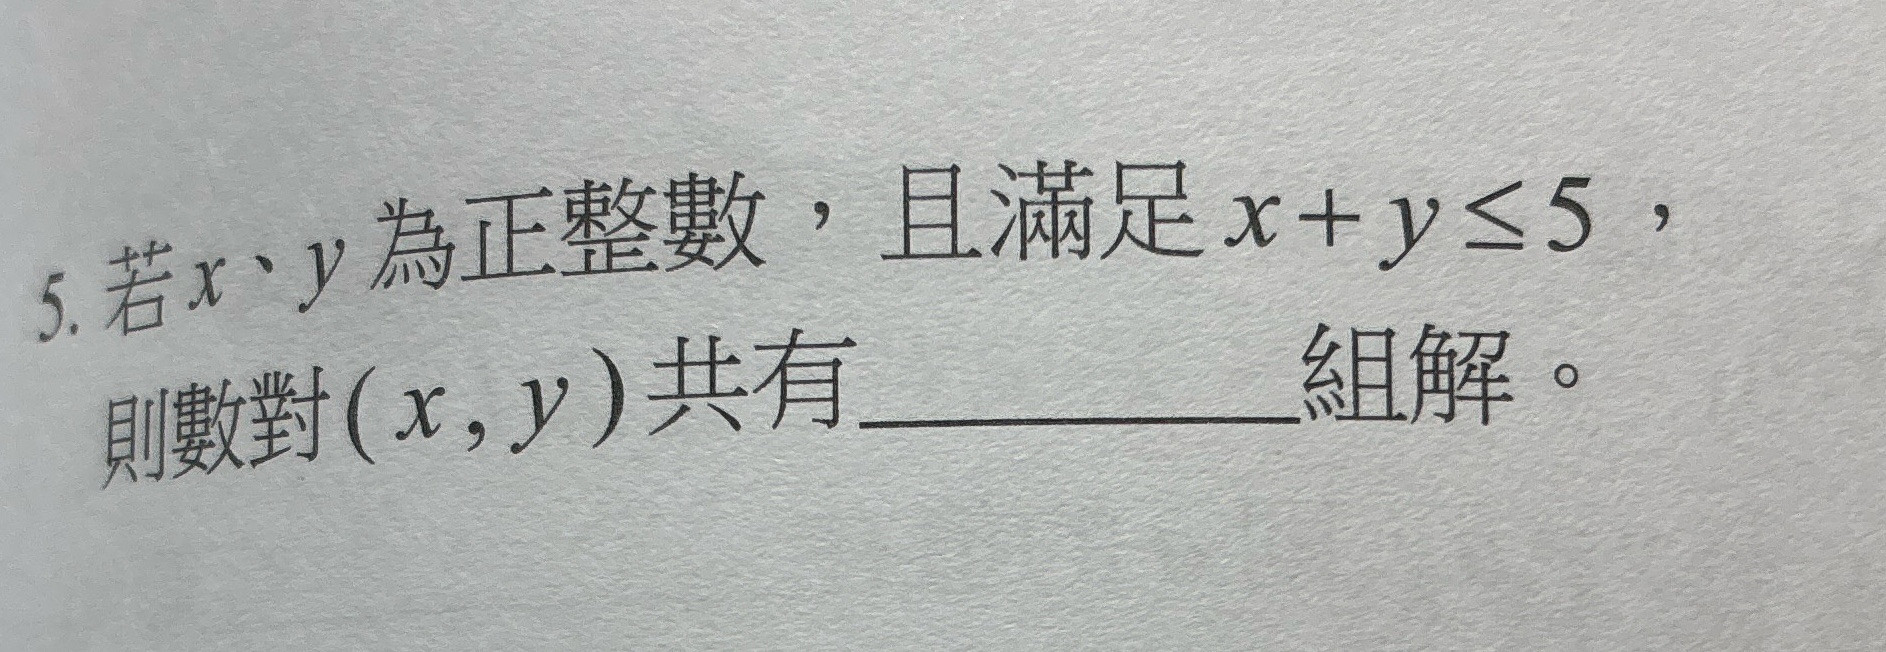 5. 若x、y為正整數，且滿足x+y≤5，
則數對(x,y)共有________組解。